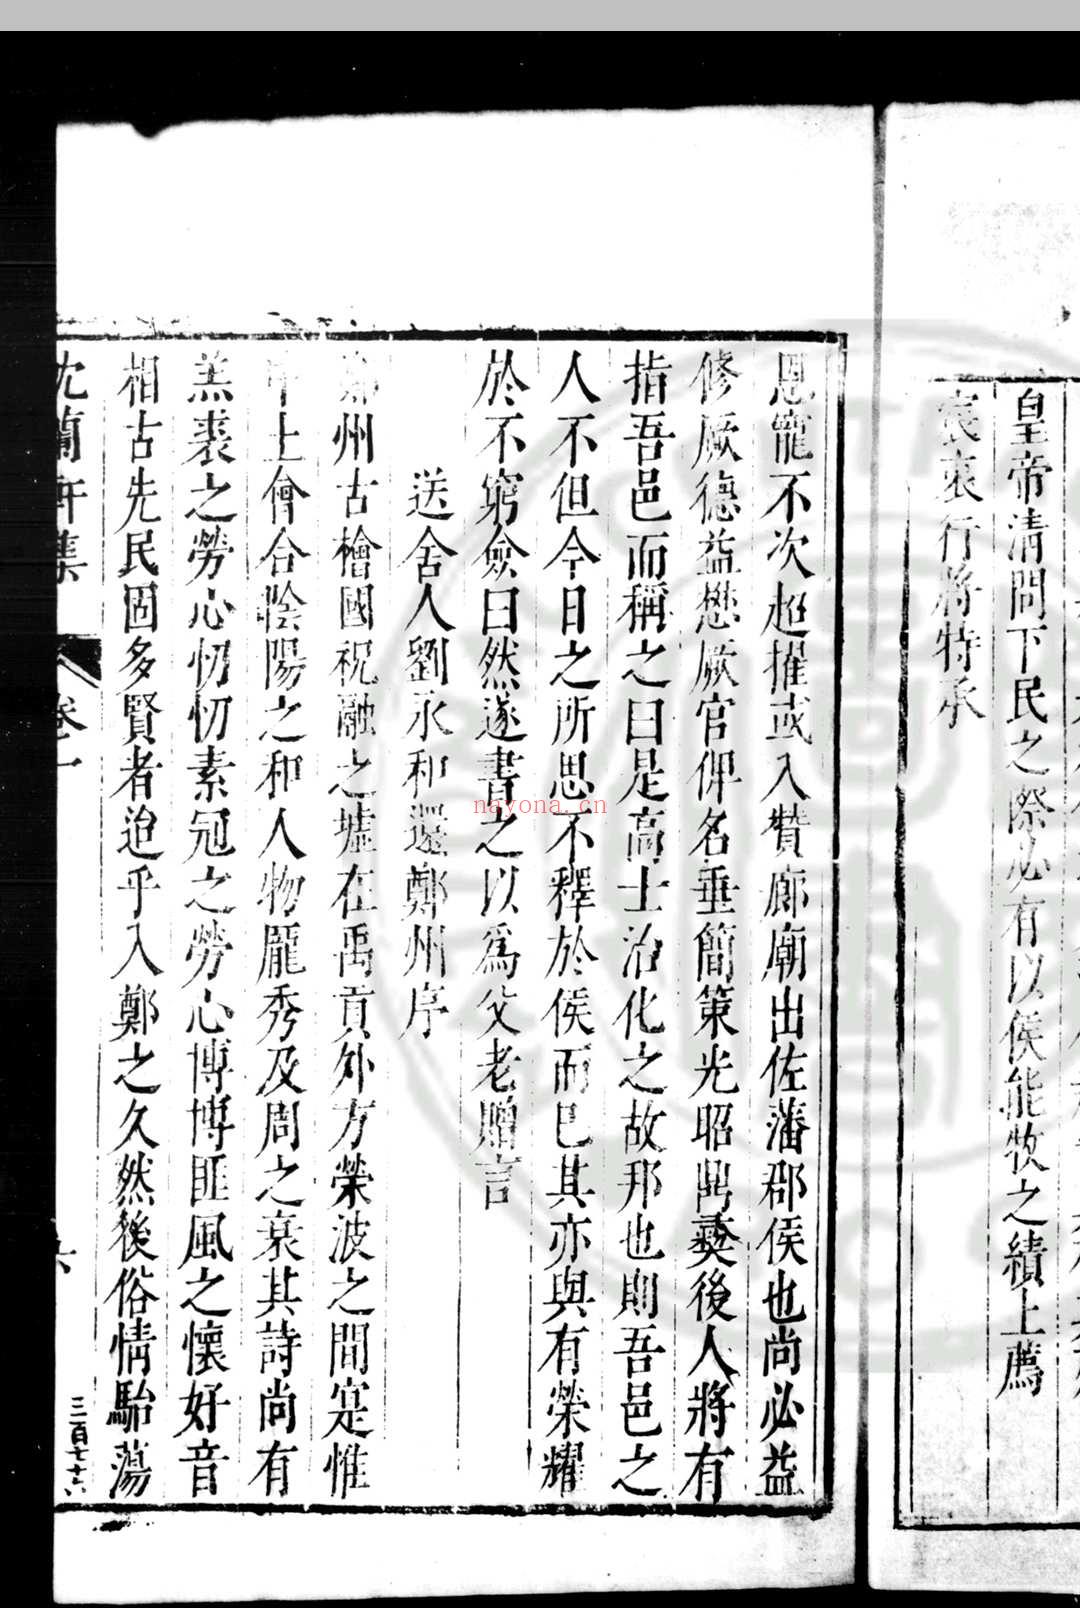 皇帝清問下民之際必有以侯能牧之績上薦
宸衷行將特承
恩寵不次超擢或入贊廊廟出佐藩郡侯也尚必益
修厥德益懋厥官俾名垂簡策光昭鼎彜後人將有
指吾邑而稱之曰是高士治化之故邦也則吾邑之
人不但今日之所思不釋於侯而已其亦與有榮耀
於不窮僉曰然遂書之以爲父老贈言
送舍人劉永和還鄭州序
鄭州古檜國祝融之墟在禹貢外方滎波之間寔惟
中土會合陰陽之和人物龎秀及周之衰其詩尚有
羔裘之勞心忉忉素冠之勞心博博匪風之懷好音
相古先民固多賢者迨乎入鄭之久然後俗情駘蕩
沈蘭軒集
卷一
六
三百七十六
nayona.cn